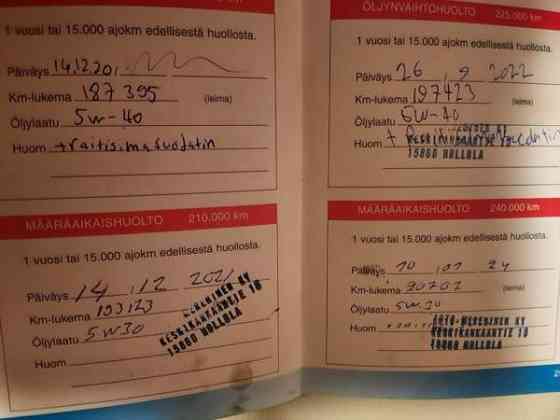 1 vuosi tai 15.000 ajokm edellisestä huollosta.
Päiväys 14.12.20
Km-lukema 187 395 (leima)
Öljylaatu 5W-40
Huom + raitisilmasuodatin
MÄÄRÄAIKAISHUOLTO 210.000 km
1 vuosi tai 15.000 ajokm edellisestä huollosta.
Päiväys 14 .12 2021
Km-lukema 193123
Öljylaatu 5W30
Huom
KESKIKANKAANTIE 18
15860 HOLLOLA
ÖLJYNVAIHTOHUOLTO 225.000 km
1 vuosi tai 15.000 ajokm edellisestä huollosta.
Päiväys 26 . 9 2022
Km-lukema 197423 (leima)
Öljylaatu 5W-40
Huom +
15860 HOLLOLA
MÄÄRÄAIKAISHUOLTO 240.000 km
1 vuosi tai 15.000 ajokm edellisestä huollosta.
Päiväys 10 24
Km-lukema (leima)
Öljylaatu 5W30
Huom
KESKIKANKAANTIE 18
15860 HOLLOLA